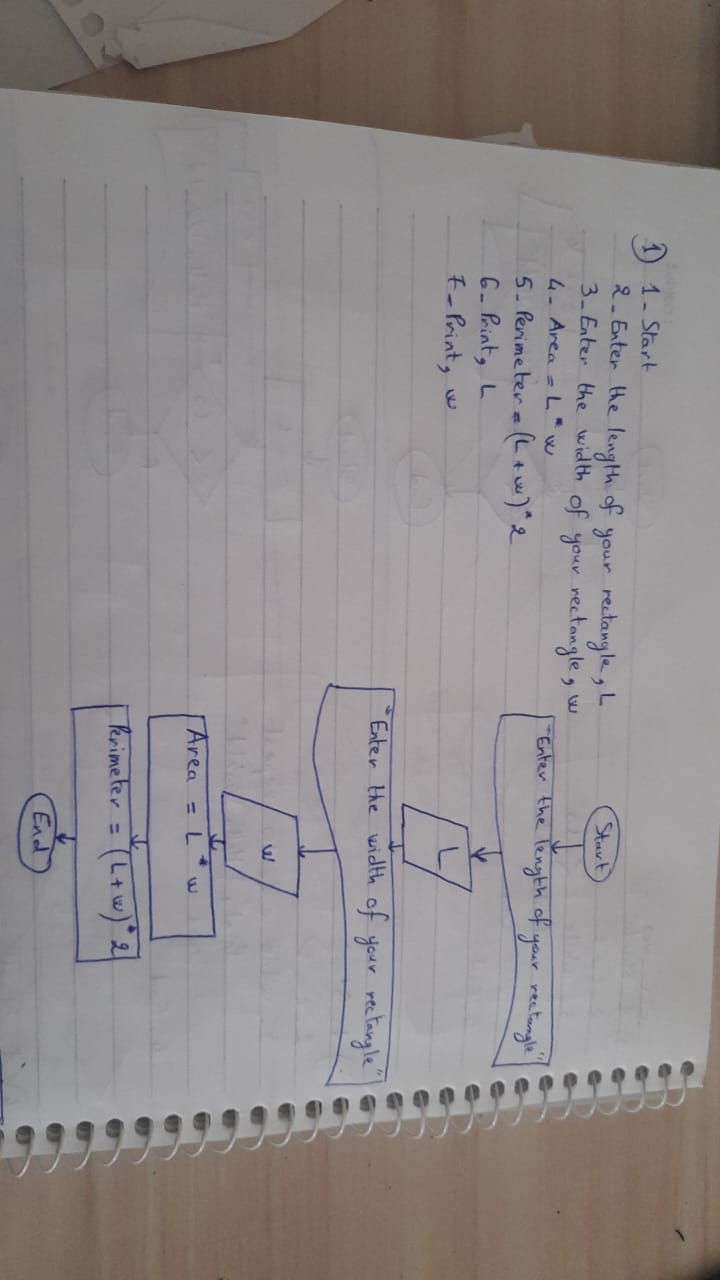 ① 1- Start
2- Enter the length of your rectangle, L
3- Enter the width of your rectangle, w
4- Area = L * w
5- Perimeter = (L + w) * 2
6- Print, L
7- Print, w
Start
"Enter the length of your rectangle"
L
"Enter the width of your rectangle"
w
Area = L * w
Perimeter = (L + w) * 2
End